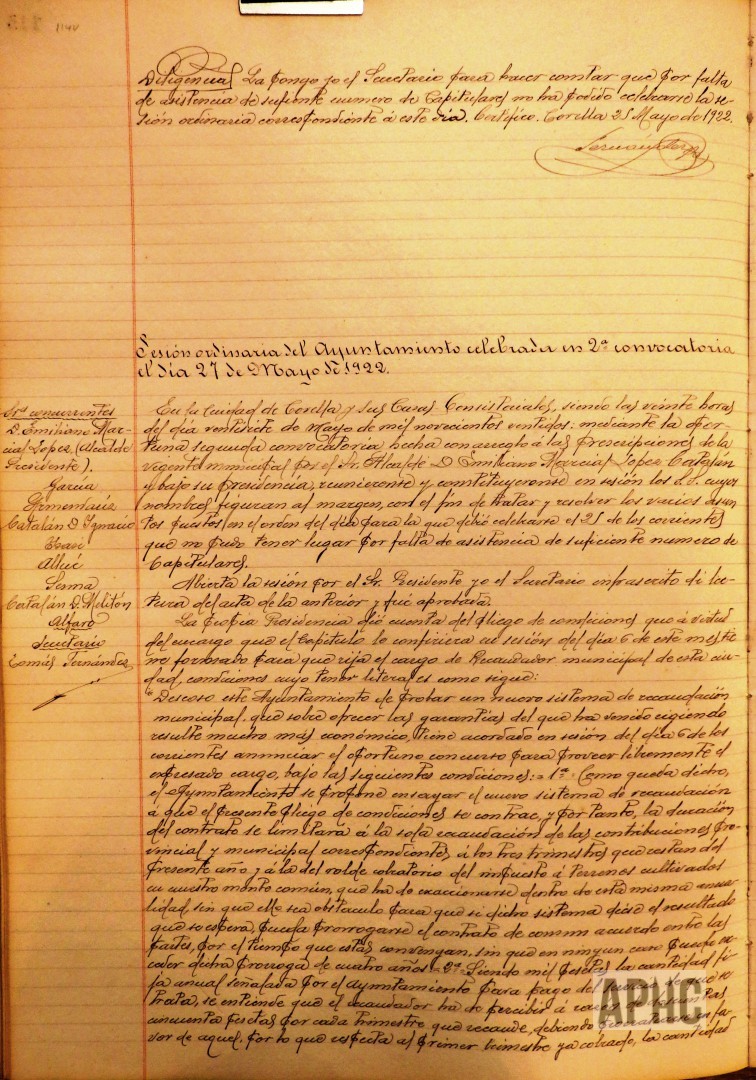 1140
Diligencia. La pongo yo el Secretario para hacer constar que por falta
de asistencia de sufiente numero de Capitulares no ha podido celebrarse la se-
sión ordinaria correspondiente á este día. Certifico. Corella 25 Mayo de 1922.
Sesión ordinaria del Ayuntamiento celebrada en 2ª convocatoria
el día 27 de Mayo de 1922.
Srs concurrentes
D. Emiliano Mar-
cial Lopez (Alcalde
Presidente).
Garcia
Armendariz
Catalán D. Ignacio
Allué
Sesma
Catalán D. Melitón
Alfaro
Secretario
Tomás Fernández
En la Ciudad de Corella y sus Casas Consistoriales, siendo las veinte horas
del día veintisiete de mayo de mil novecientos veintidos: mediante la opor-
tuna segunda convocatoria hecha con arreglo á las prescripciones de la
vigente municipal por el Sr. Alcalde D. Emiliano Marcial Lopez Catalán
y bajo su presidencia, reunieronse y constituyeronse en sesión los S.S. cuyos
nombres figuran al margen, con el fin de tratar y resolver los varios asun-
tos puestos en el orden del día para la que debió celebrarse el 25 de los corrientes
que no pudo tener lugar por falta de asistencia de suficiente numero de
Capitulares.
Abierta la sesión por el Sr. Presidente yo el Secretario infrascrito dí lec-
tura del acta de la anterior y fué aprobada.
La propia Presidencia dió cuenta del pliego de condiciones que á virtud
del encargo que el Capítulo le confiriera en sesión del día 6 de este mes tie-
ne formado para que rija el cargo de Recaudador municipal de esta ciu-
dad, condiciones cuyo tenor literal es como sigue:
"Deseoso este Ayuntamiento de probar un nuevo sistema de recaudación
municipal, que sobre ofrecer las garantías del que ha venido rigiendo
resulte mucho más económico, tiene acordado en sesión del día 6 de los
corrientes anunciar el oportuno concurso para proveer libremente el
expresado cargo, bajo las siguientes condiciones: = 1ª. Como queda dicho,
el Ayuntamiento se propone ensayar el nuevo sistema de recaudación
á que el presente pliego de condiciones se contrae, y por tanto, la duración
del contrato se limitará á la sola recaudación de las contribuciones pro-
vincial y municipal correspondientes á los tres trimestres que restan del
presente año y á la del rolde cobratorio del impuesto á terrenos cultivados
en nuestro monte común, que ha de exaccionarse dentro de esta misma anua-
lidad, sin que ello sea obstaculo para que si dicho sistema diése el resultado
que se espera pueda prorrogarse el contrato de comun acuerdo entre las
partes, por el tiempo que estas convengan, sin que en ningun caso pueda ex-
ceder dicha prorroga de cuatro años = 2ª Siendo mil pesetas la cantidad fi-
ja anual señalada por el ayuntamiento para pago del
trata, se entiende que el recaudador ha de percibir á razón de doscientas
cincuenta pesetas por cada trimestre que recaude, debiendo en fa-
vor de aquel, por lo que respecta al primer trimestre ya cobrado, la cantidad
APHC